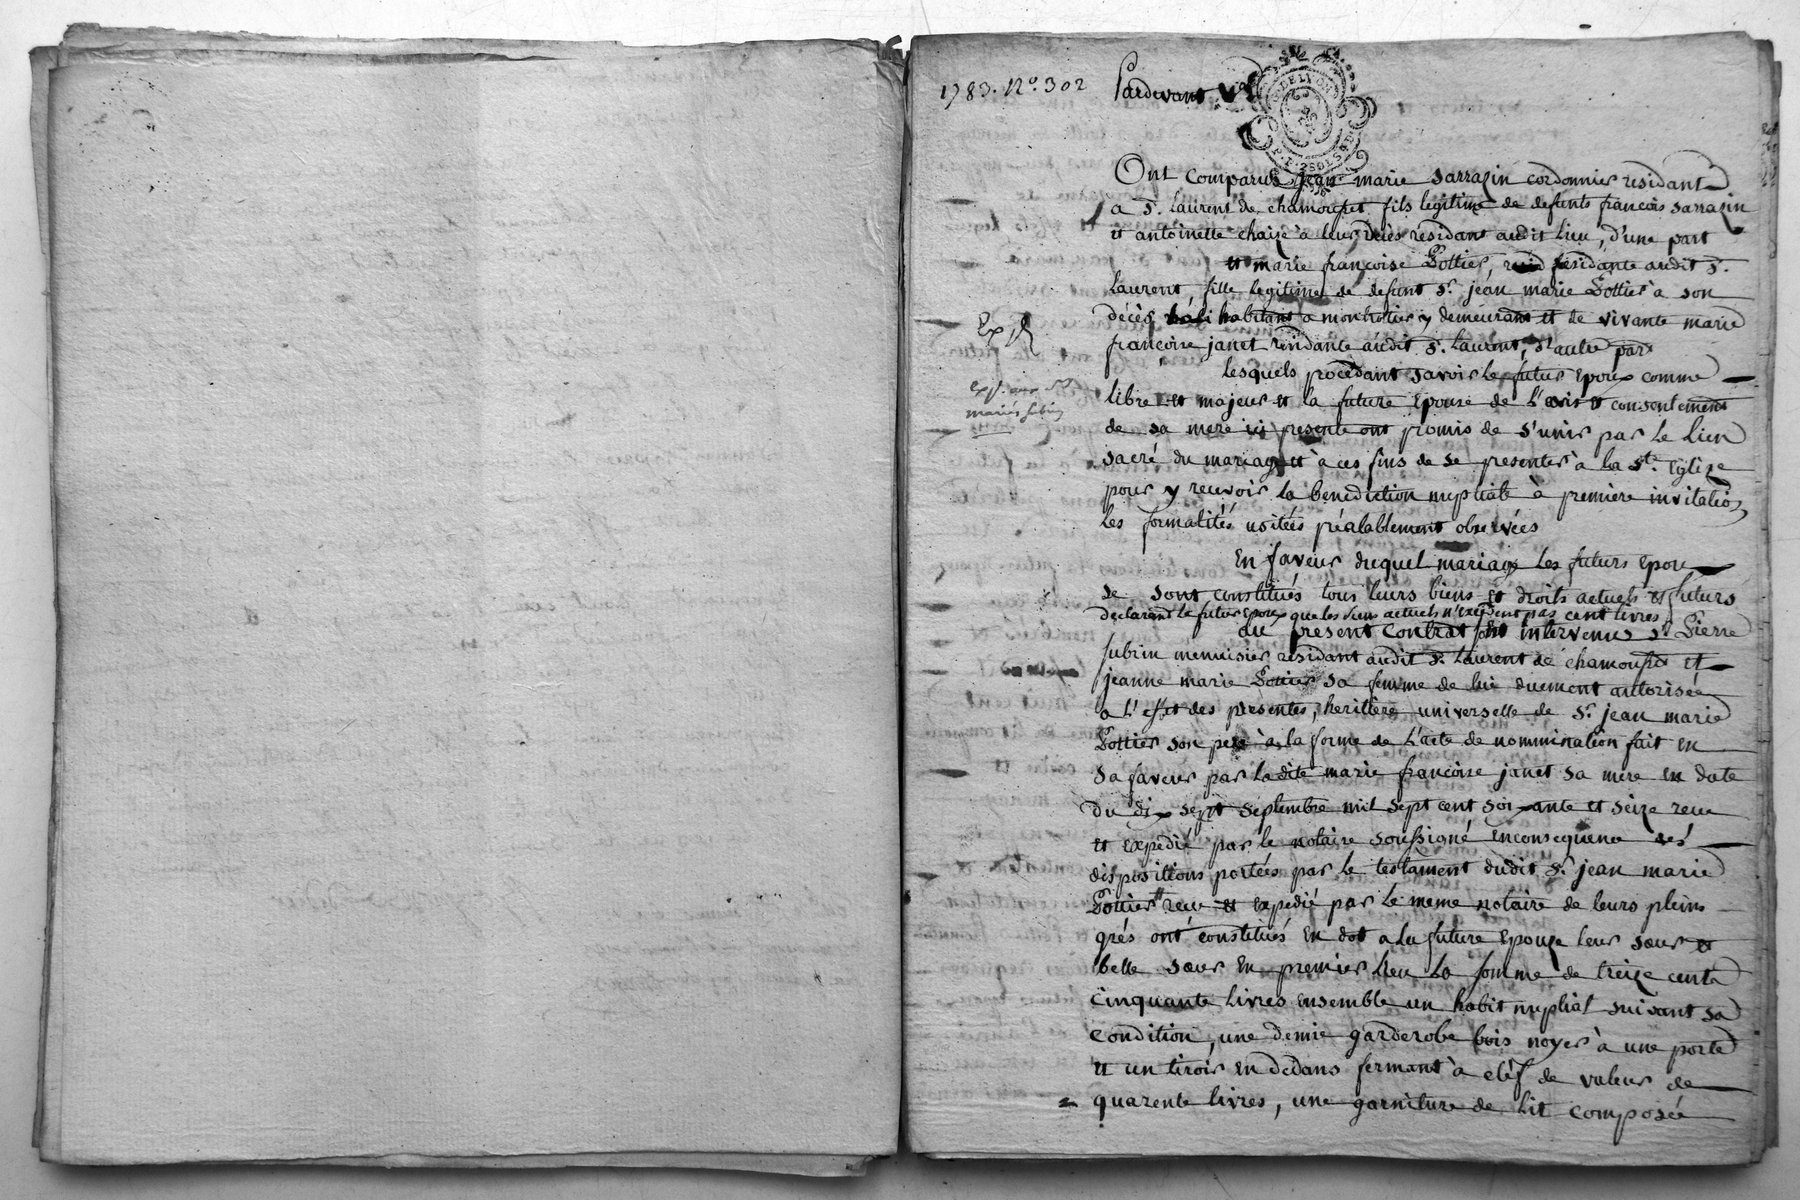 1783. N.° 302
Pardevant
DE LYON
2 SOLS 8 D
Ont comparus jean marie sarrazin cordonnier residant
a St. Laurent de chamousset fils legitime de defunts francois sarrazin
et antoinette chaize à leurs décès residant audit lieu, d'une part
et marie françoise Pottier, residante audit St.
Laurent, fille legitime de defunt Sr. jean marie Pottier à son
décès habitant a montrotier y demeurant et de vivante marie
francoise janet residante audit St. Laurent, d'autre part
Lesquels procedant savoir Le futur Epoux comme
libre et majeur et la future Epouse de L'avis et consentement
de sa mere ici presente ont promis de s'unir par Le Lien
sacré du mariage et à ces fins de se presenter à la Ste. Eglize
pour y recevoir la benediction nuptiale à premiere invitation
Les formalités usitées préalablement observées
En faveur duquel mariage Les futurs Epoux
se sont constitués tous leurs biens et droits actuels et futurs
declarant le futur Epoux que les siens actuels n'excedent pas cent livres
au present contrat sont intervenus Sr. Pierre
subrin menuisier residant audit St. Laurent de chamousset et
jeanne marie Pottier sa femme de lui duement autorisée
a L'effet des presentes, heritiere universelle de Sr. jean marie
Pottier son père à la forme de L'acte de nommination fait en
sa faveur par Ladite marie francoise janet sa mere en date
du dix sept septembre mil sept cent soixante et seize recu
et expedié par le notaire soussigné en consequence des
dispositions portées par le testament dudit Sr. jean marie
Pottier recu et expedié par Le meme notaire de leurs pleins
grés ont constitués en dot a la future epouze leur sœur et
belle sœur en premier lieu La somme de treize cents
cinquante livres ensemble un habit nuptial suivant sa
condition, une demie garderobe bois noyer à une porte
et un tiroir en dedans fermant à cléf de valeur de
quarente livres, une garniture de lit composée
Exp.
exp. aux
mariés subrin